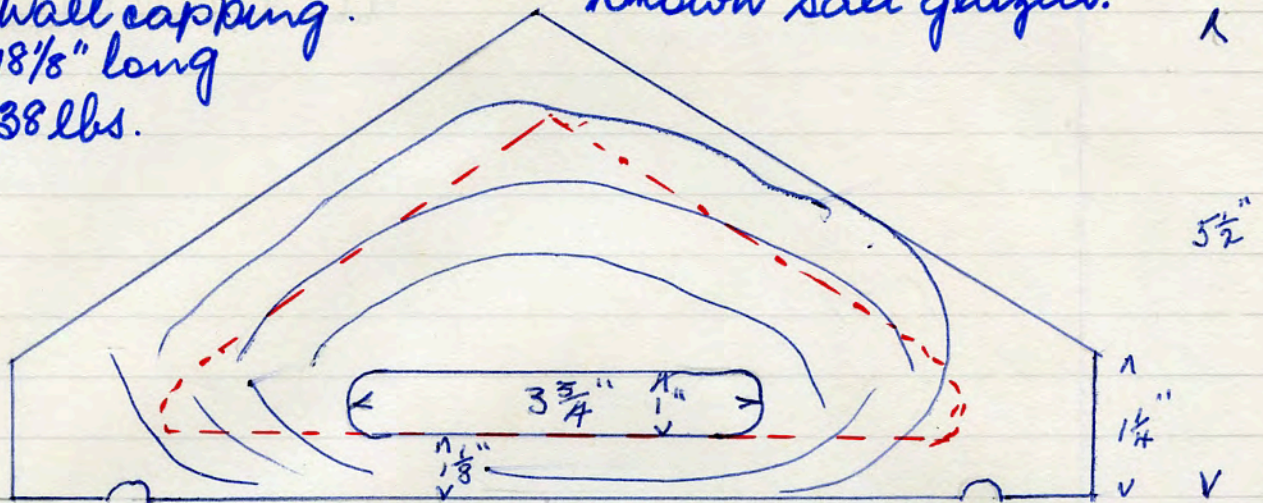 Wall capping.
18⅛" long
38 lbs.
Known salt glazed.
5½"
3¾"
1"
1¼"
1⅛"